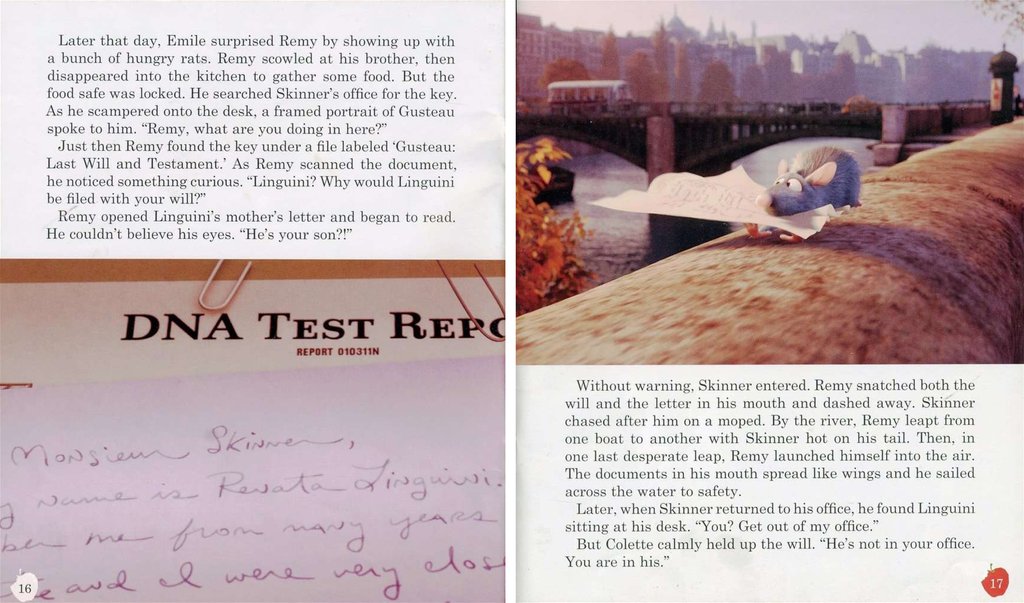 Later that day, Emile surprised Remy by showing up with
a bunch of hungry rats. Remy scowled at his brother, then
disappeared into the kitchen to gather some food. But the
food safe was locked. He searched Skinner's office for the key.
As he scampered onto the desk, a framed portrait of Gusteau
spoke to him. “Remy, what are you doing in here?”
Just then Remy found the key under a file labeled ‘Gusteau:
Last Will and Testament.’ As Remy scanned the document,
he noticed something curious. “Linguini? Why would Linguini
be filed with your will?”
Remy opened Linguini's mother's letter and began to read.
He couldn't believe his eyes. “He's your son?!”
DNA TEST REPO
REPORT 010311N
Monsieur Skinner,
y name is Renata Linguini.
ber me from many years
e and I were very clos
16
Without warning, Skinner entered. Remy snatched both the
will and the letter in his mouth and dashed away. Skinner
chased after him on a moped. By the river, Remy leapt from
one boat to another with Skinner hot on his tail. Then, in
one last desperate leap, Remy launched himself into the air.
The documents in his mouth spread like wings and he sailed
across the water to safety.
Later, when Skinner returned to his office, he found Linguini
sitting at his desk. “You? Get out of my office.”
But Colette calmly held up the will. “He's not in your office.
You are in his.”
17